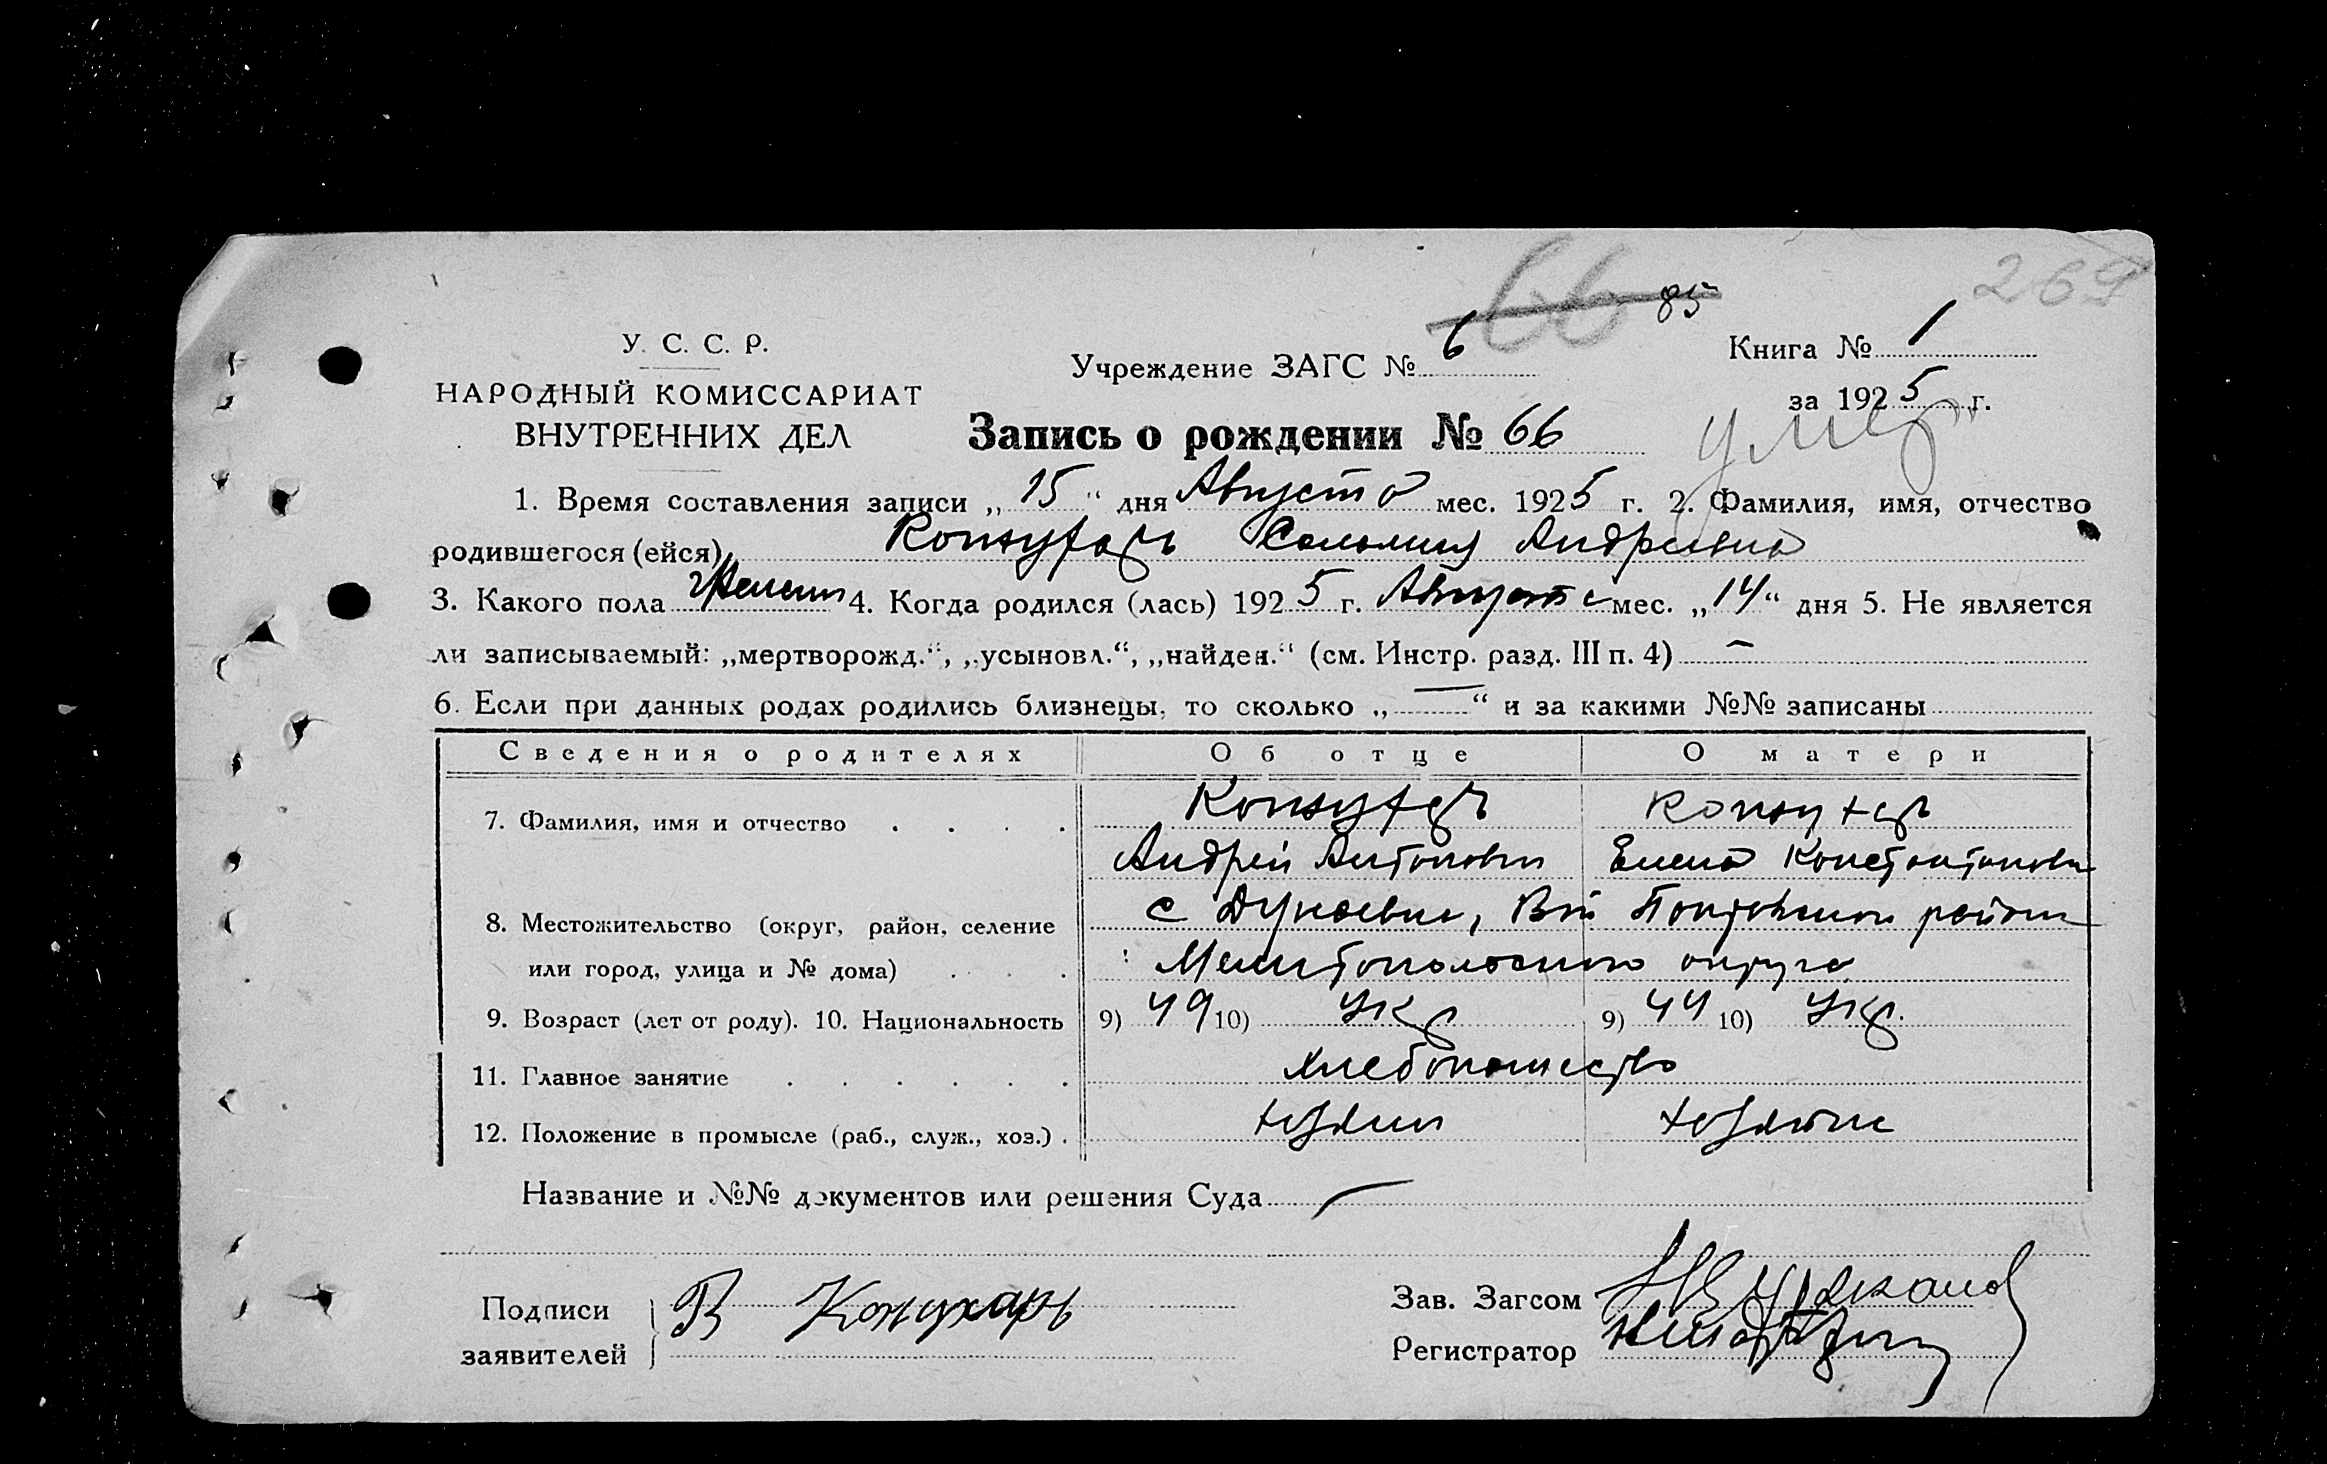 269
66 85
У. С. С. Р.
Учреждение ЗАГС № 6
Книга № 1
НАРОДНЫЙ КОМИССАРИАТ
за 1925 г.
ВНУТРЕННИХ ДЕЛ
Запись о рождении № 66
умер
1. Время составления записи „15“ дня Августа мес. 1925 г. 2. Фамилия, имя, отчество
родившегося (ейся) Конюхарь Соломия Андреевна
3. Какого пола женский 4. Когда родился (лась) 1925 г. Августа мес. „14“ дня 5. Не является
ли записываемый: „мертворожд.“, „усыновл.“, „найден.“ (см. Инстр. разд. III п. 4) —
6. Если при данных родах родились близнецы, то сколько „—“ и за какими №№ записаны
Сведения о родителях Об отце О матери
7. Фамилия, имя и отчество . . . . Конюхарь Конюхарь
Андрей Антонович Елена Константиновн
8. Местожительство (округ, район, селение с Дунаевка,
или город, улица и № дома) . . . Мелитопольского округа
9. Возраст (лет от роду). 10. Национальность 9) 49 10) Укр 9) 44 10) Укр.
11. Главное занятие . . . . . . хлебопашество
12. Положение в промысле (раб., служ., хоз.) . хозяин хозяйка
Название и №№ документов или решения Суда —
Подписи
заявителей
В Конюхарь
Зав. Загсом
Регистратор